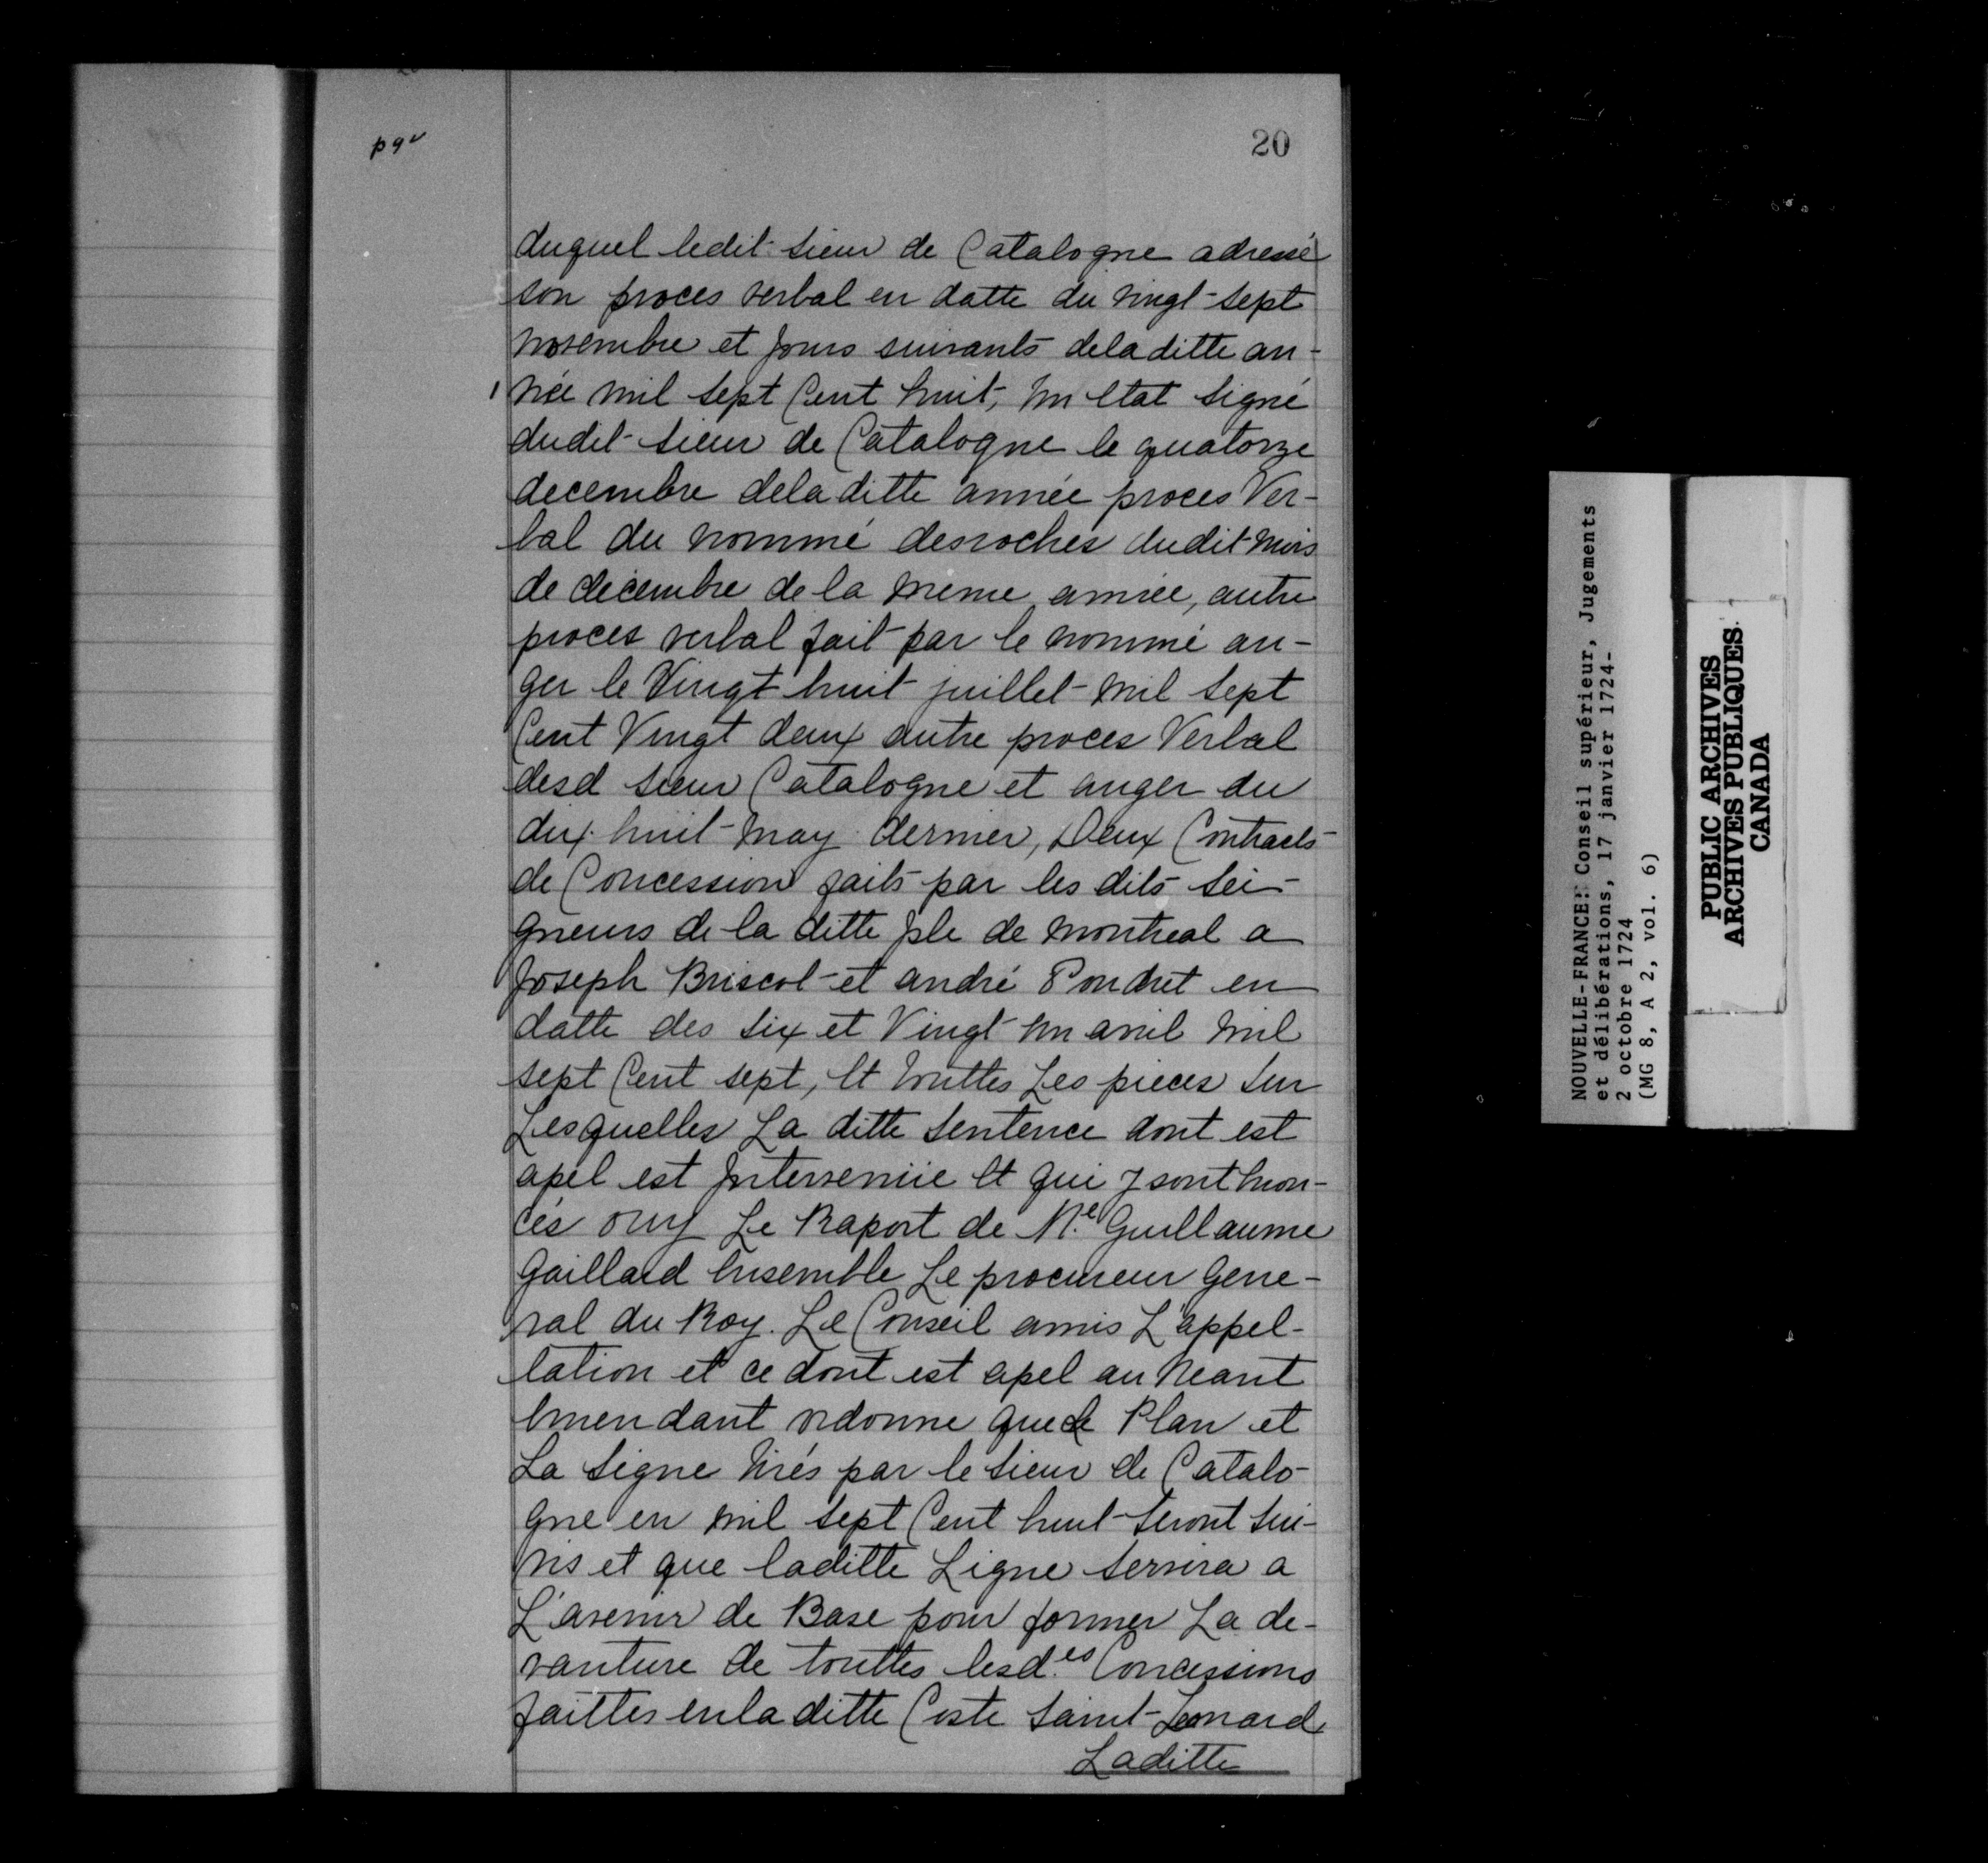 p 9v
20
duquel ledit sieur de Catalogne adressé
son proces verbal en datte du vingt-sept
novembre et jours suivants dela ditte an-
née mil sept Cent huit, un Etat signé
dudit sieur de Catalogne le quatorze
decembre dela ditte année proces Ver-
bal du nommé desroches dudit mois
de decembre de la meme année, autre
proces verbal fait par le nommé an-
ger le Vingt huit juillet mil sept
Cent Vingt deux autre proces Verbal
desd sieur Catalogne et anger du
dix huit May dernier, Deux Contracts
de Concession faits par les dits sei-
gneurs de la ditte jle de montreal a
Joseph Briscol et andré Poudret en
datte des six et Vingt un avril mil
sept Cent sept, Et touttes Les pieces sur
Lesquelles La ditte sentence dont est
apel est Intervenüe Et qui y sont Enon-
cés ouy Le Raport de Me Guillaume
Gaillard Ensemble Le procureur Gene-
ral du Roy. Le Conseil amis L'appel-
lation et ce dont est apel au Neant
Emendant ordonne que le Plan et
La Ligne tirés par le sieur de Catalo-
gne en mil sept Cent huit seront sui-
vis et que laditte Ligne servira a
L'avenir de Base pour former La de-
vanture de touttes lesd.es Concessions
faittes enla ditte Coste saint-Leonard
Laditte
NOUVELLE-FRANCE: Conseil supérieur, Jugements
et délibérations, 17 janvier 1724-
2 octobre 1724
(MG 8, A 2, vol. 6)
PUBLIC ARCHIVES
ARCHIVES PUBLIQUES
CANADA